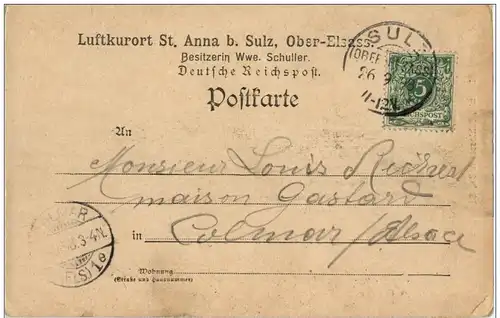 Luftkurort St. Anna b. Sulz, Ober-Elsass.
Besitzerin Wwe. Schuller.
Deutsche Reichspost.
Postkarte
SULZ
26 9
11-12V.
5 5
REICHSPOST
An
Monsieur Louis Richert
maison Gastard
in Colmar / Alsace
3-4N.
(ELS) 1e
Wohnung
(Straße und Hausnummer)